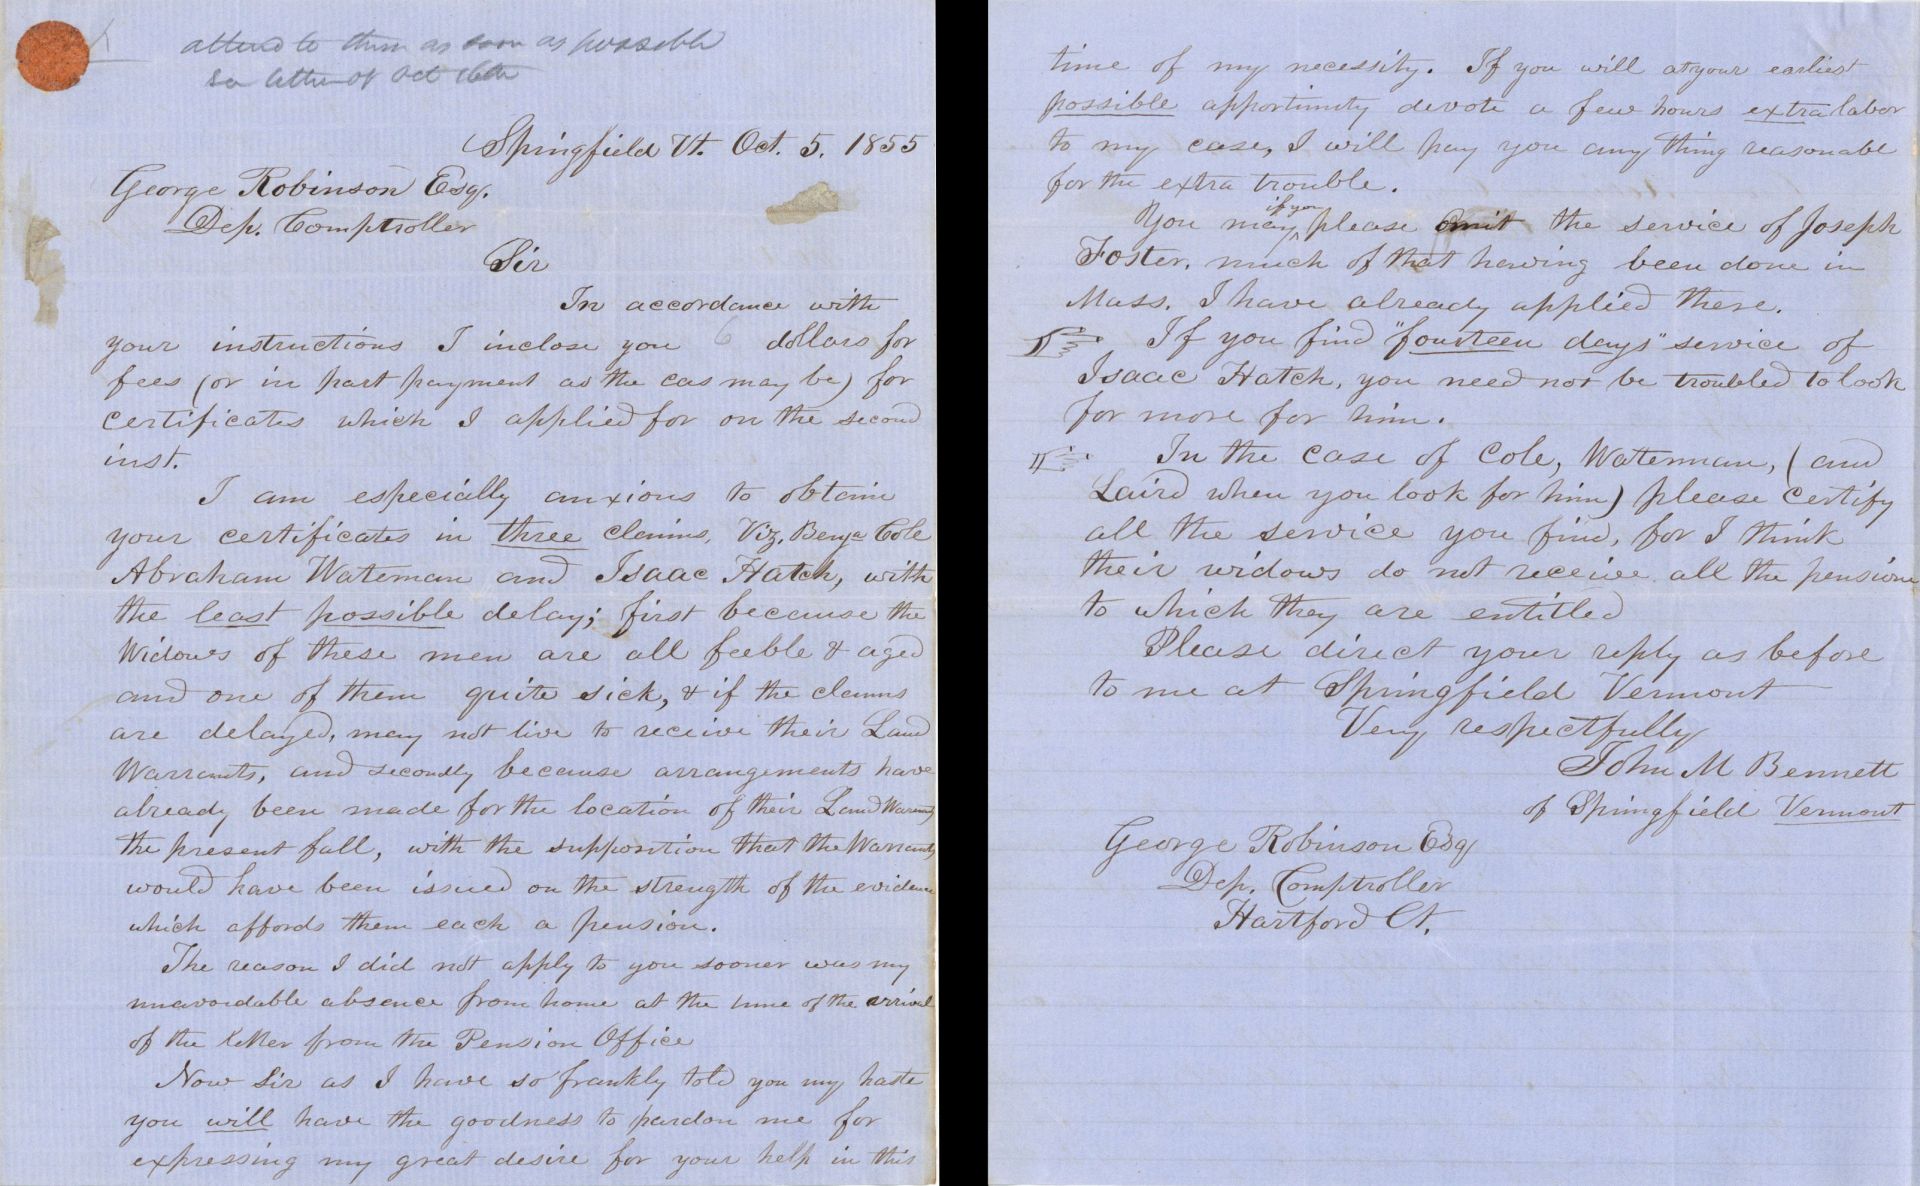 attend to them as soon as possible
see letter of Oct 16th
Springfield Vt. Oct. 5. 1855
George Robinson Esq.
Dep. Comptroller
Sir
In accordance with
your instructions I inclose you 6 dollars for
fees (or in part payment as the cas may be) for
certificates which I applied for on the second
inst.
I am especially anxious to obtain
your certificates in three claims, Viz, Benja Cole
Abraham Waterman and Isaac Hatch, with
the least possible delay; first because the
Widows of these men are all feeble & aged
and one of them quite sick, & if the claims
are delayed, may not live to receive their Land
Warrants, and secondly because arrangements have
already been made for the location of their Land Warrants
the present fall, with the supposition that the Warrants
would have been issued on the strength of the evidence
which affords them each a pension.
The reason I did not apply to you sooner was my
unavoidable absence from home at the time of the arrival
of the letter from the Pension Office
Now Sir as I have so frankly told you my haste
you will have the goodness to pardon me for
expressing my great desire for your help in this
time of my necessity. If you will at your earliest
possible opportunity devote a few hours extra labor
to my case, I will pay you any thing reasonable
for the extra trouble.
You may if you please omit the service of Joseph
Foster, much of that having been done in
Mass. I have already applied there.
If you find "fourteen days" service of
Isaac Hatch, you need not be troubled to look
for more for him.
In the case of Cole, Waterman, (and
Laird when you look for him) please certify
all the service you find, for I think
their widows do not receive all the pension
to which they are entitled
Please direct your reply as before
to me at Springfield Vermont
Very respectfully
John M Bennett
of Springfield Vermont
George Robinson Esq
Dep. Comptroller
Hartford Ct.